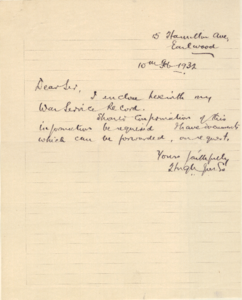 15 Hamilton Ave,
Earlwood
10th Feb 1932
Dear Sir,
I enclose herewith my
War Service Record.
Should Confirmation of this
information be required I have documents
which can be forwarded, on request.
Yours faithfully
Hugh